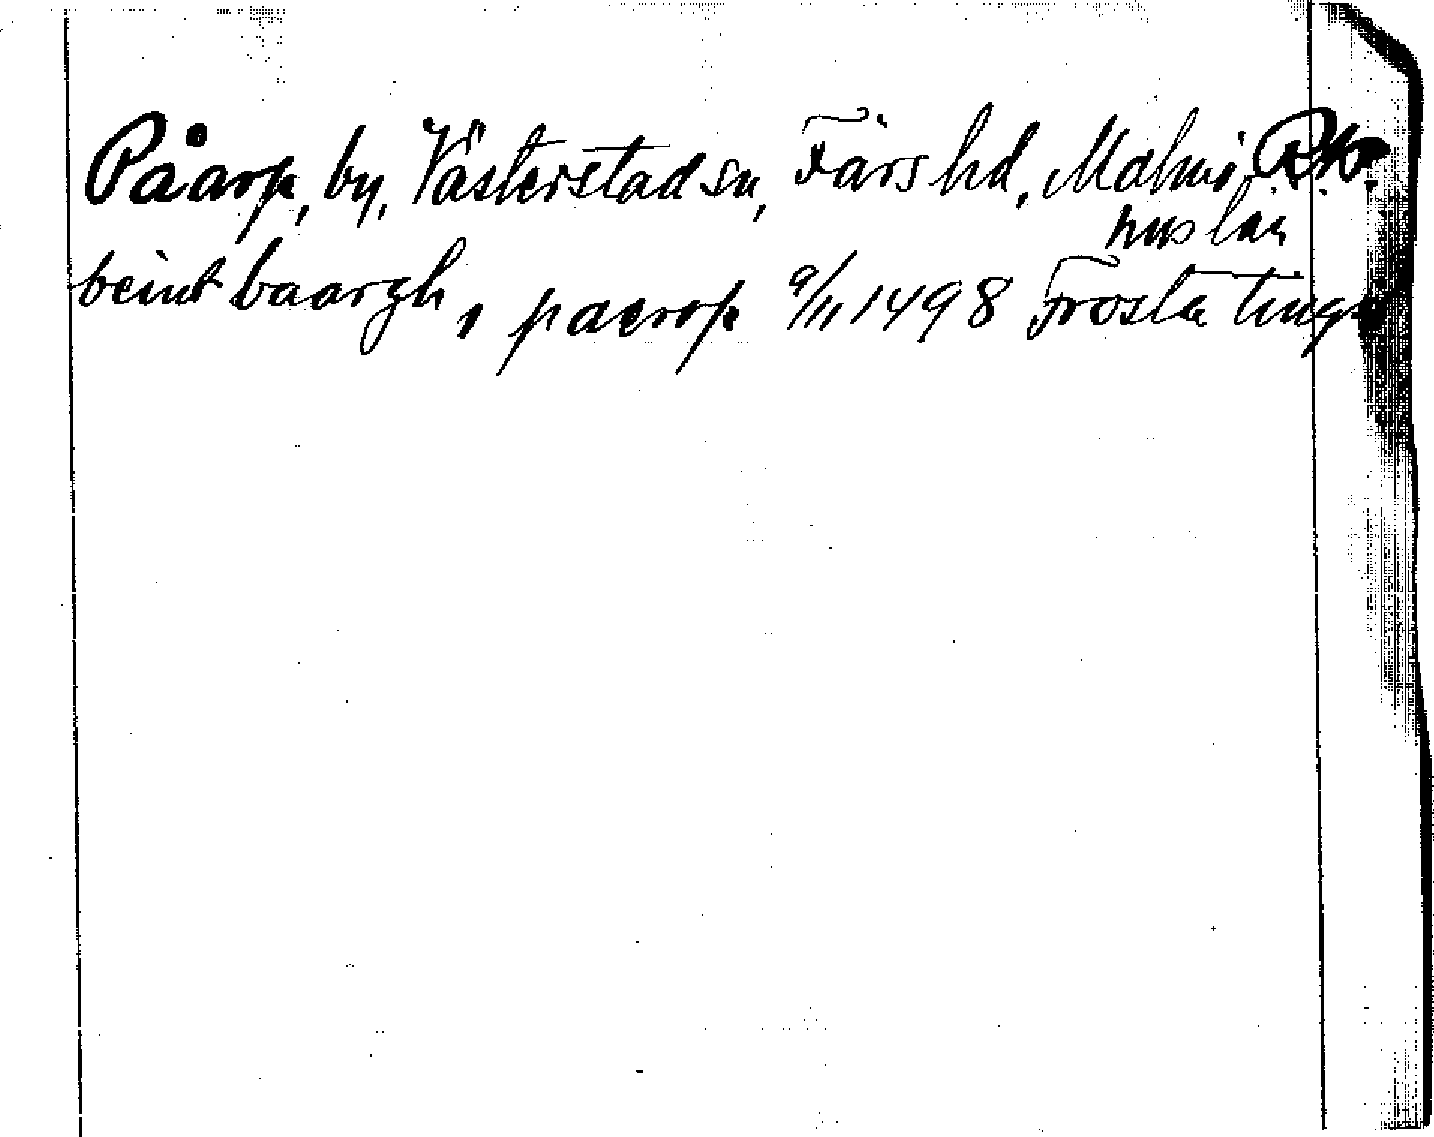 Påarp, by, Västerstad sn, Färs hd, Malmö
huslän
beint baargh, i paerop 9/11 1498 Frosta tings